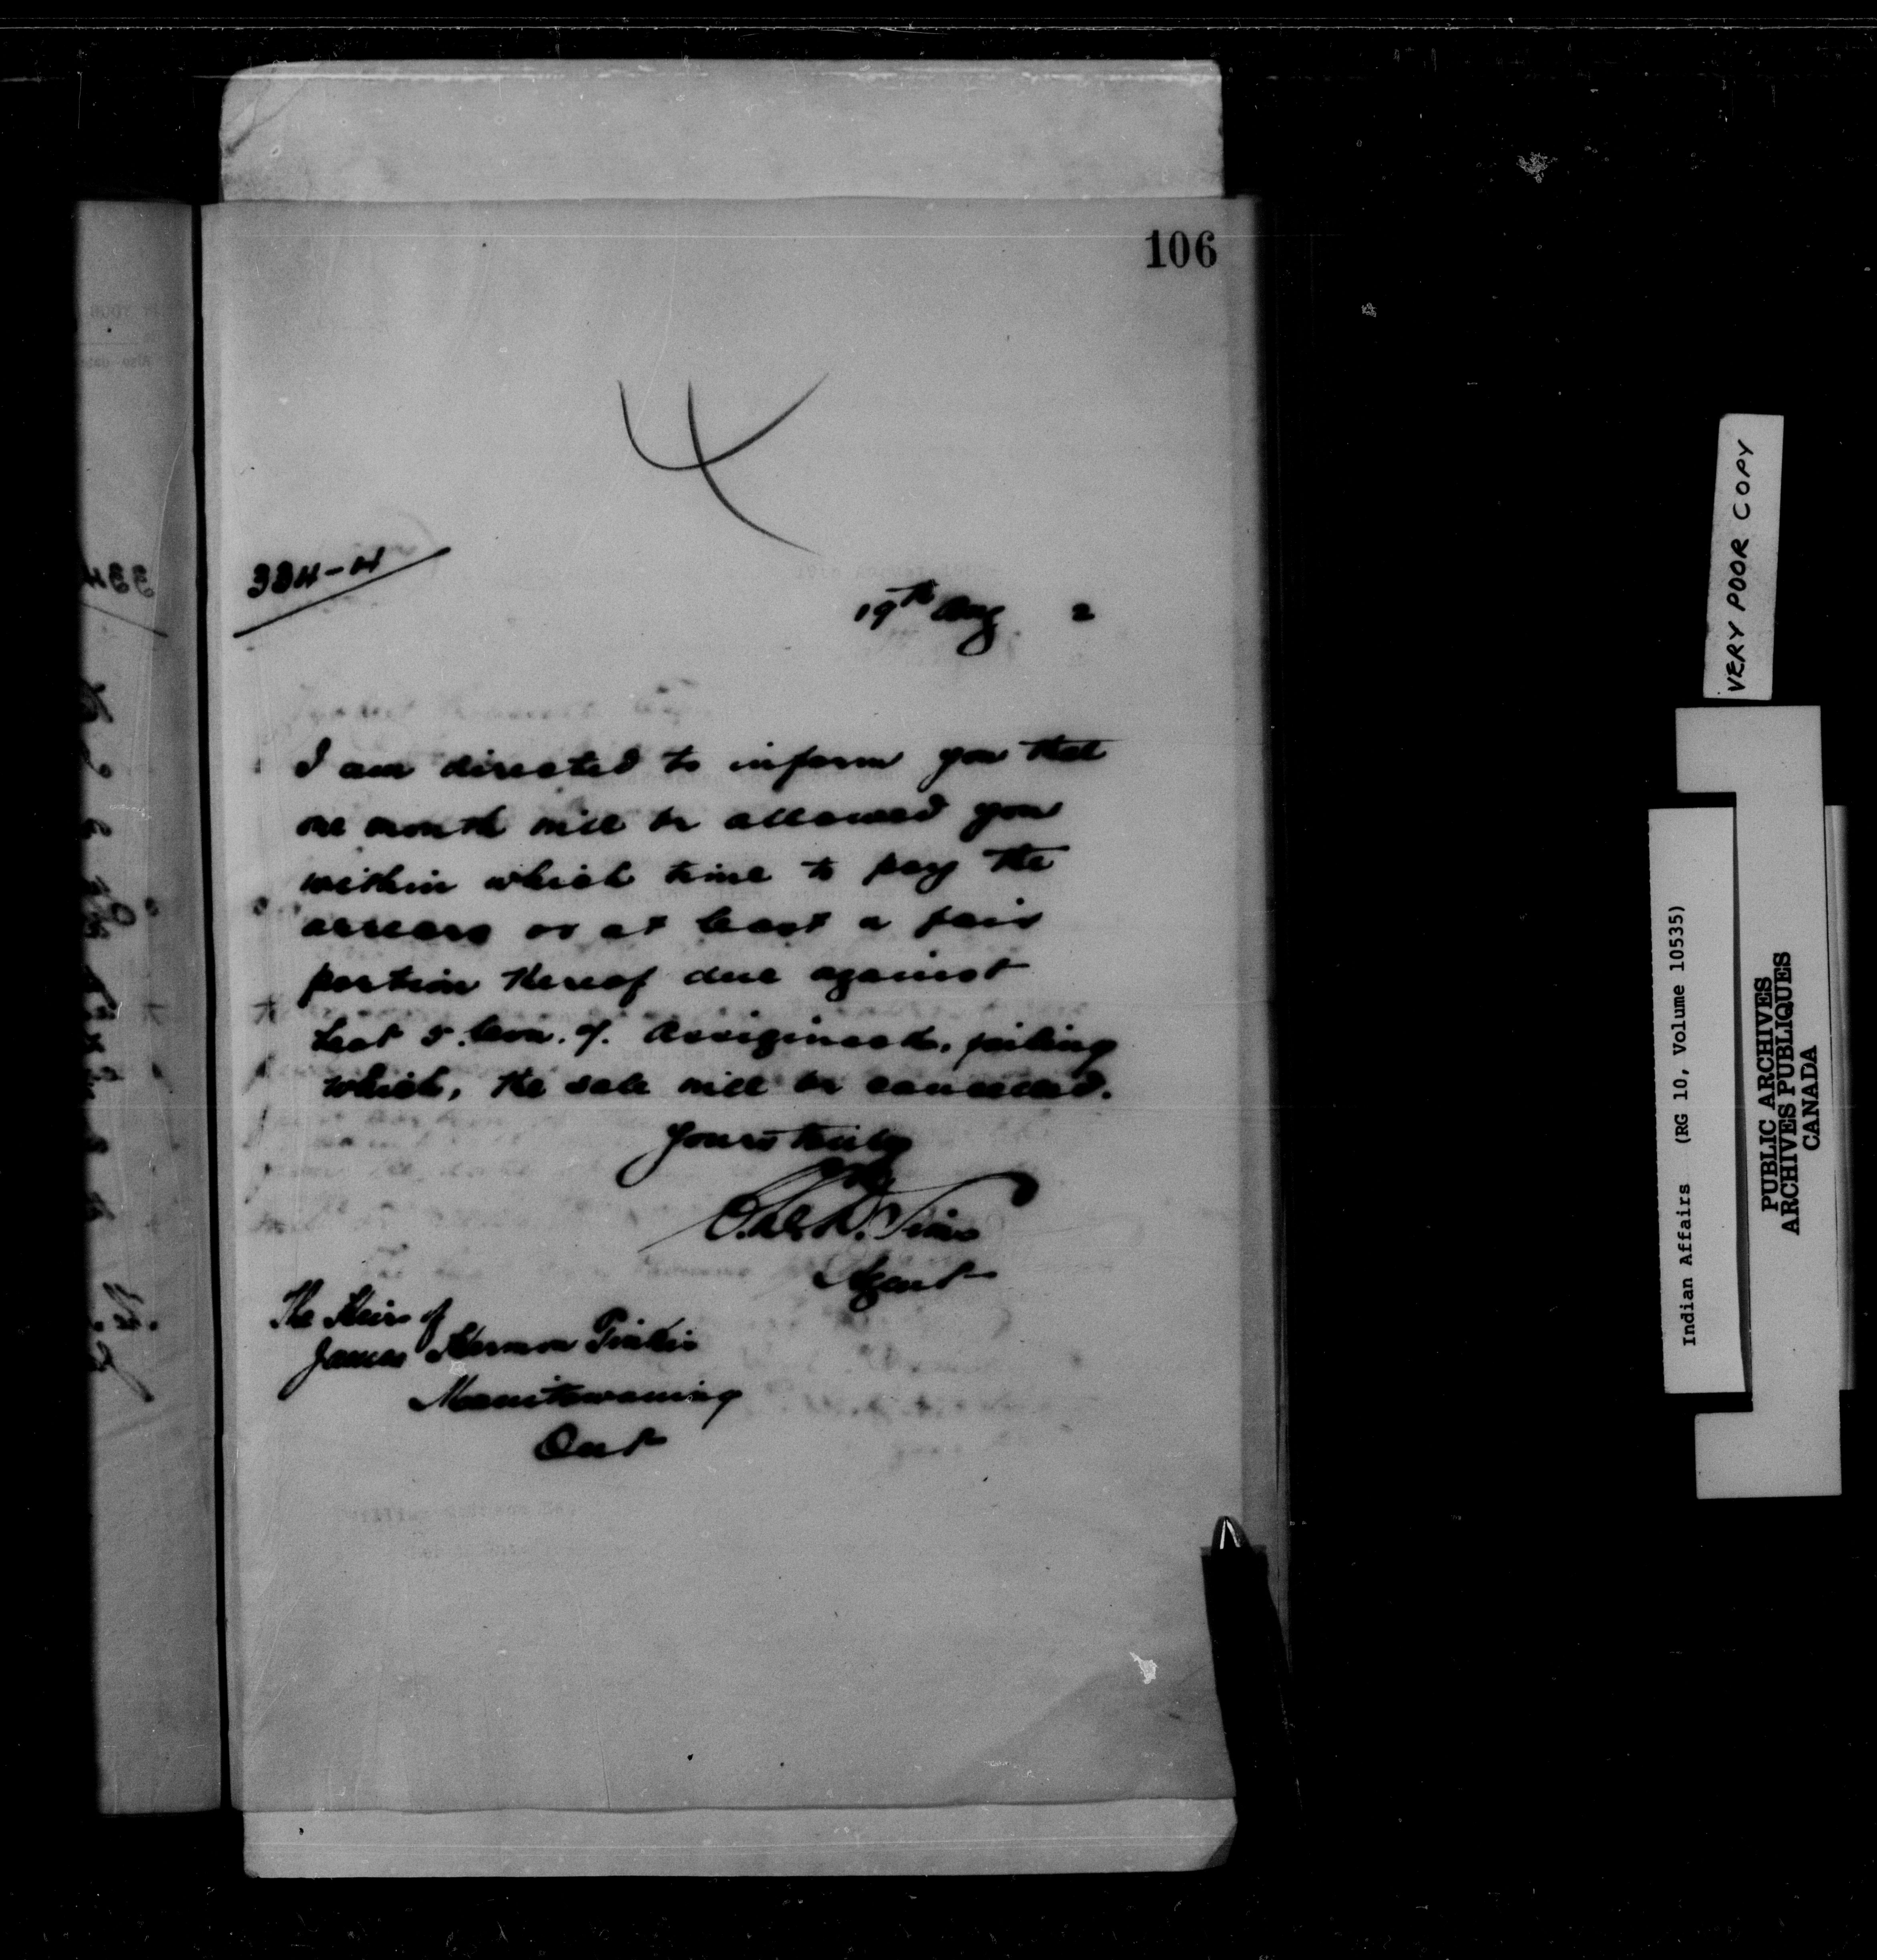 106
334-4
19th Aug 2
I am directed to inform you that
one month will be allowed you
within which time to pay the
arrears or at least a fair
portion thereof due against
Lot 5. Con. 9. Assiginack, failing
which, the sale will be cancelled.
Yours truly
Sims
Agent
The Heirs of
James
Manitowaning
Ont
VERY POOR COPY
Indian Affairs (RG 10, Volume 10535)
PUBLIC ARCHIVES
ARCHIVES PUBLIQUES
CANADA